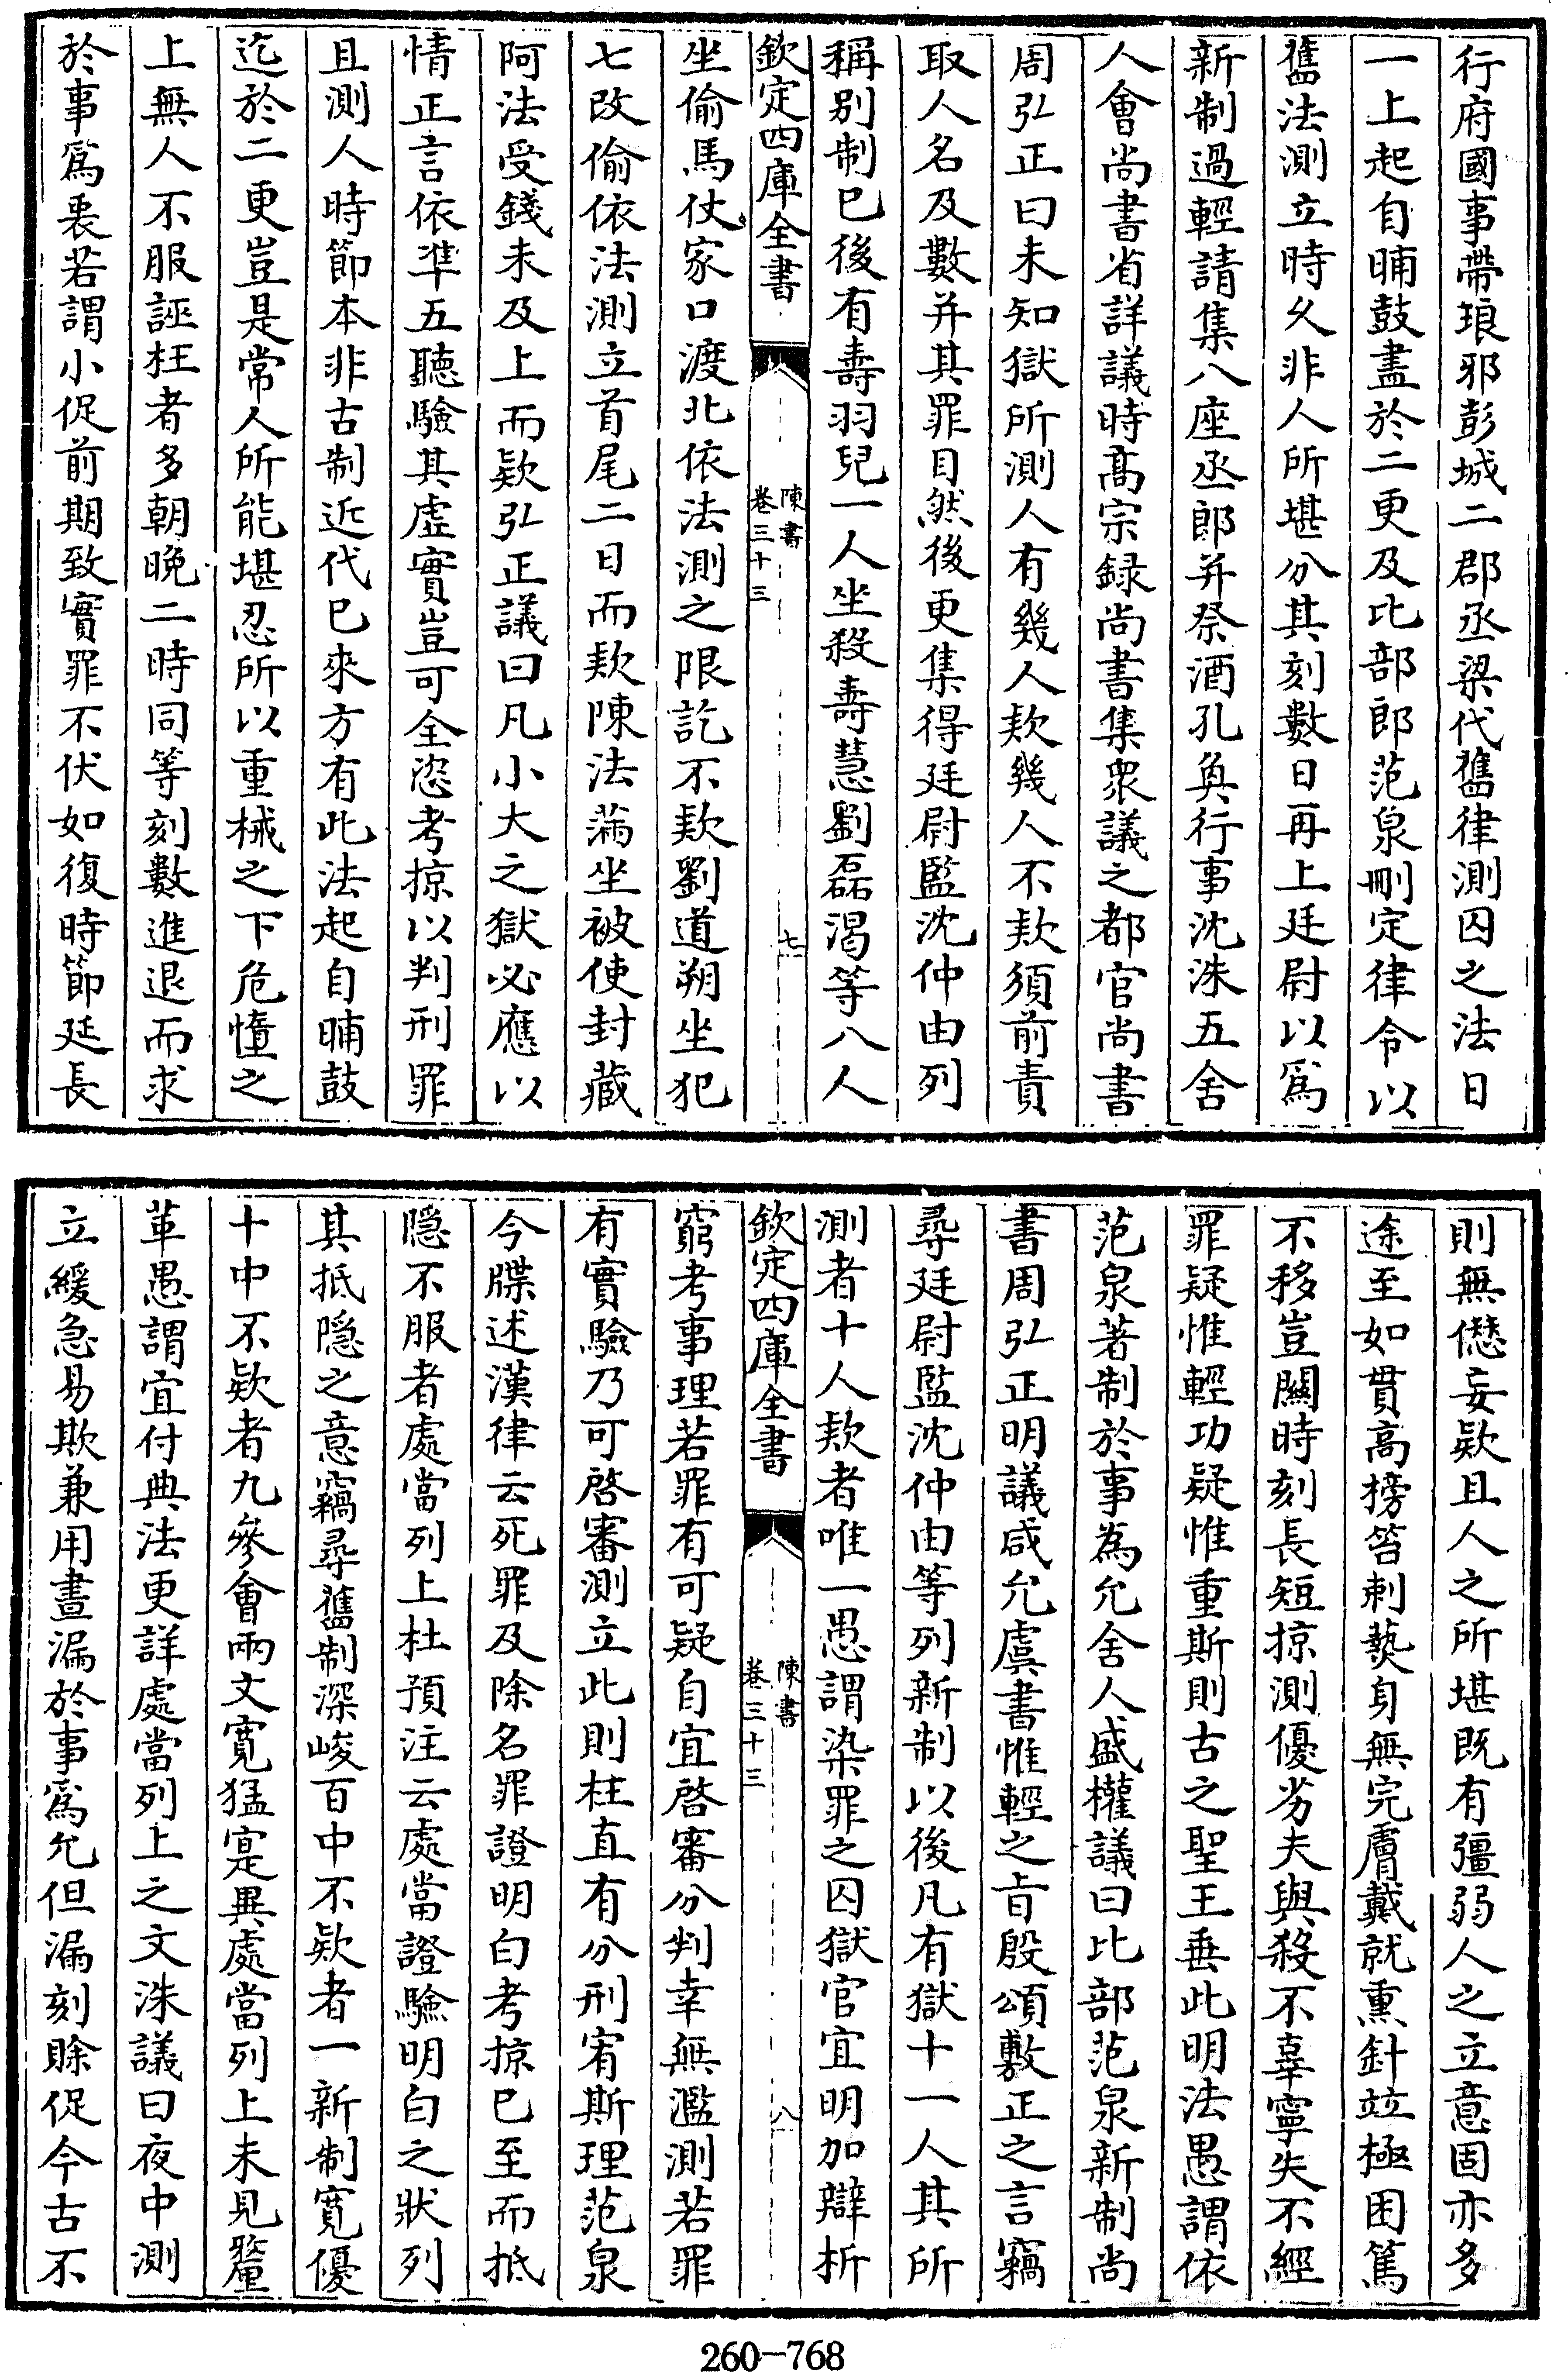 行府國事帶琅邪彭城二郡丞梁代舊律測囚之法日
一上起自晡鼓盡於二更及比部郎范泉刪定律令以
舊法測立時久非人所堪分其刻數日再上廷尉以爲
新制過輕請集八座丞郎并祭酒孔奐行事沈洙五舍
人會尚書省詳議時高宗録尚書集衆議之都官尚書
周弘正曰未知獄所測人有幾人欵幾人不欵須前責
取人名及數并其罪目然後更集得廷尉監沈仲由列
稱别制已後有壽羽兒一人坐殺壽慧劉磊渴等八人
欽定四庫全書
陳書
卷三十三
七
坐偷馬仗家口渡北依法測之限訖不欵劉道朔坐犯
七改偷依法測立首尾二日而欵陳法滿坐被使封藏
阿法受錢未及上而欵弘正議曰凡小大之獄必應以
情正言依準五聽驗其虚實豈可全恣考掠以判刑罪
且測人時節本非古制近代已來方有此法起自晡鼓
迄於二更豈是常人所能堪忍所以重械之下危憧之
上無人不服誣枉者多朝晚二時同等刻數進退而求
於事爲衷若謂小促前期致實罪不伏如復時節延長
則無愆妄欵且人之所堪既有彊弱人之立意固亦多
途至如貫高搒笞刺爇身無完膚戴就熏針竝極困篤
不移豈關時刻長短掠測優劣夫與殺不辜寧失不經
罪疑惟輕功疑惟重斯則古之聖王垂此明法愚謂依
范泉著制於事為允舍人盛權議曰比部范泉新制尚
書周弘正明議咸允虞書惟輕之旨殷頌敷正之言竊
尋廷尉監沈仲由等列新制以後凡有獄十一人其所
測者十人欵者唯一愚謂染罪之囚獄官宜明加辯析
欽定四庫全書
陳書
卷三十三
八
窮考事理若罪有可疑自宜啓審分判幸無濫測若罪
有實驗乃可啓審測立此則枉直有分刑宥斯理范泉
今牒述漢律云死罪及除名罪證明白考掠已至而抵
隠不服者處當列上杜預注云處當證驗明白之狀列
其抵隠之意竊尋舊制深峻百中不欵者一新制寬優
十中不欵者九參會兩文寛猛寔異處當列上未見釐
革愚謂宜付典法更詳處當列上之文洙議曰夜中測
立緩急易欺兼用晝漏於事爲允但漏刻賖促今古不
260—768